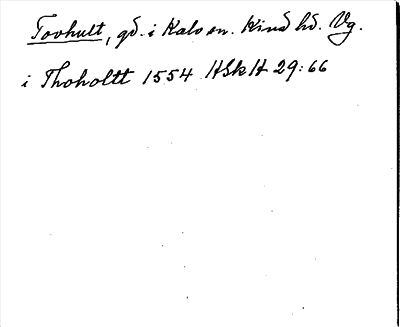 Tovhult, gd. i Kalv sn. Kind hd. Vg.
i Thoholtt 1554 HSkH 29:66